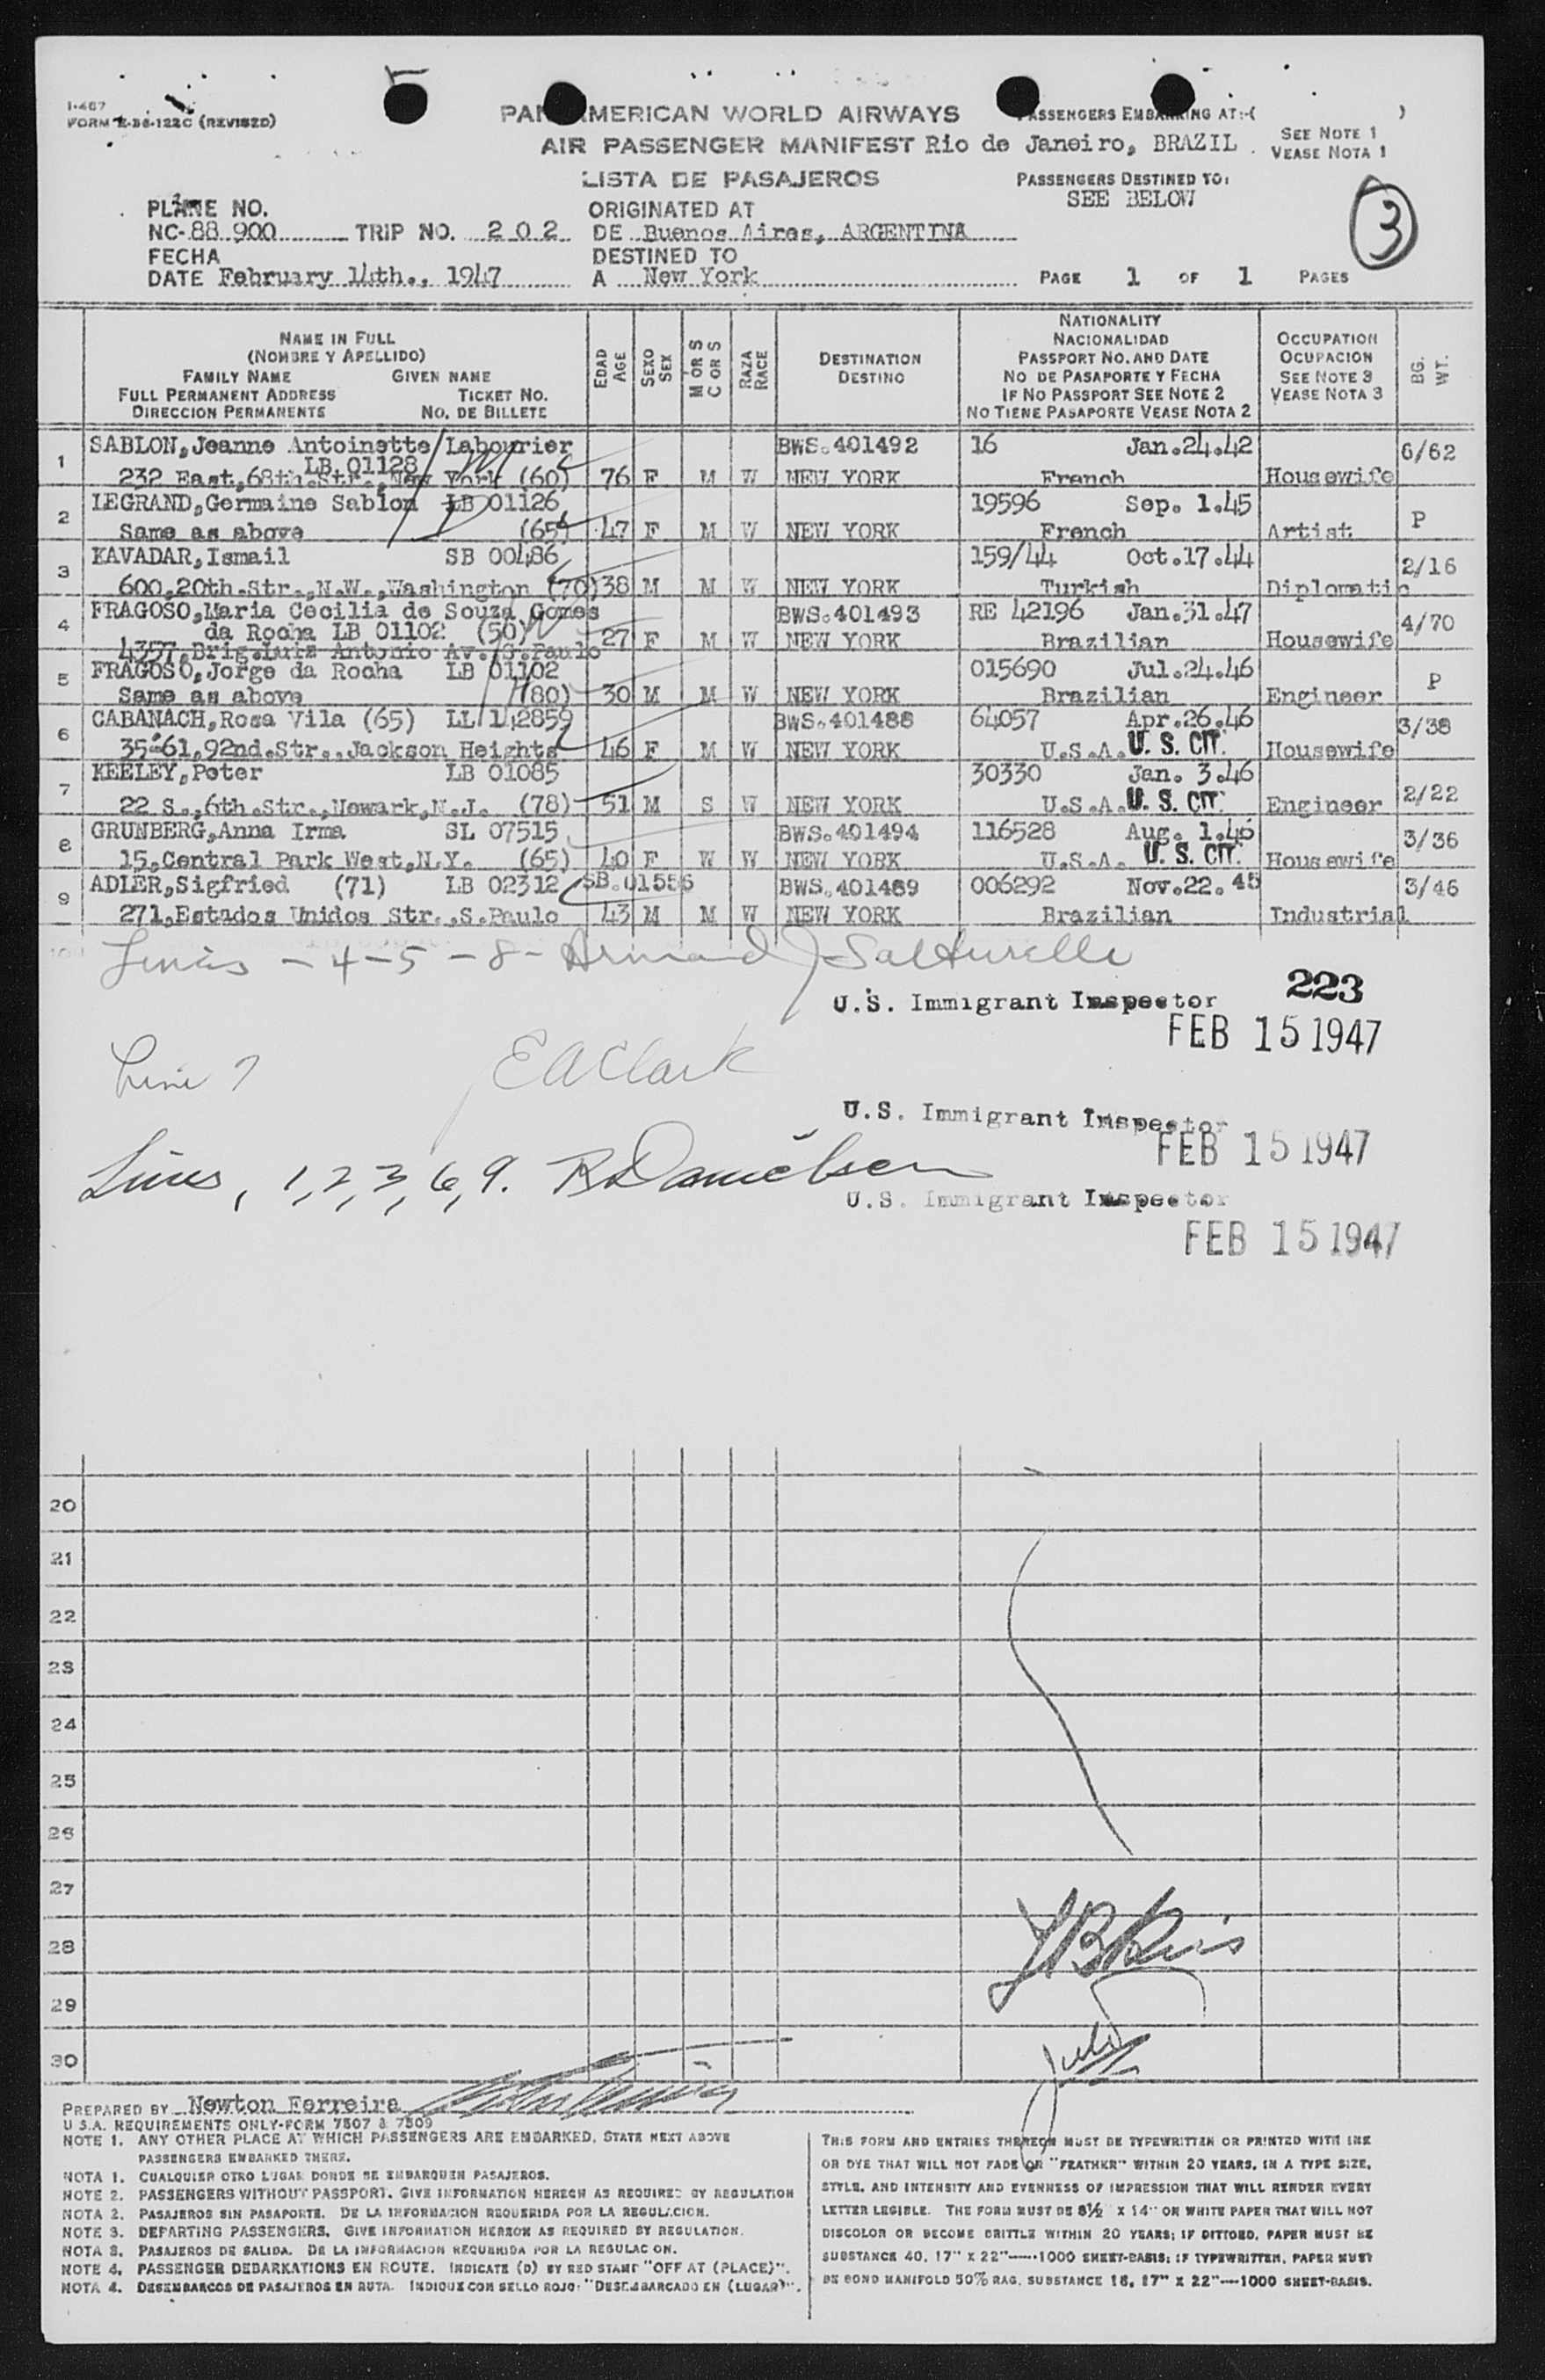 I-467
FORM E-36-122C (REVISED)
PAN AMERICAN WORLD AIRWAYS
AIR PASSENGER MANIFEST
LISTA DE PASAJEROS
PASSENGERS EMBARKING AT:-( )
Rio de Janeiro, BRAZIL.
SEE NOTE 1
VEASE NOTA 1
PASSENGERS DESTINED TO:
SEE BELOW
3
PLANE NO.
NC-88 900 TRIP NO. 2 0 2
FECHA
DATE February 14th., 1947
ORIGINATED AT
DE Buenos Aires, ARGENTINA
DESTINED TO
A New York
PAGE 1 OF 1 PAGES
NAME IN FULL
(NOMBRE Y APELLIDO)
FAMILY NAME GIVEN NAME
FULL PERMANENT ADDRESS TICKET NO.
DIRECCION PERMANENTE NO. DE BILLETE
EDAD AGE
SEXO SEX
M OR S C OR S
RAZA RACE
DESTINATION
DESTINO
NATIONALITY
NACIONALIDAD
PASSPORT NO. AND DATE
NO DE PASAPORTE Y FECHA
IF NO PASSPORT SEE NOTE 2
NO TIENE PASAPORTE VEASE NOTA 2
OCCUPATION
OCUPACION
SEE NOTE 3
VEASE NOTA 3
BG. WT.
1 SABLON, Jeanne Antoinette Labourier BWS.401492 16 Jan.24.42 6/62
LB 01128
232 East,68th.Str.,New York (60) 76 F M W NEW YORK French Housewife
2 LEGRAND,Germaine Sablon LB 01126 19596 Sep. 1.45 P
Same as above (65) 47 F M W NEW YORK French Artist
3 KAVADAR,Ismail SB 00486 159/44 Oct.17.44 2/16
600,20th.Str.,N.W.,Washington (70) 38 M M W NEW YORK Turkish Diplomatic
4 FRAGOSO,Maria Cecilia de Souza Gomes BWS.401493 RE 42196 Jan.31.47 4/70
da Rocha LB 01102 (50) 27 F M W NEW YORK Brazilian Housewife
4357,Brig.Luiz Antonio Av.,S.Paulo
5 FRAGOSO,Jorge da Rocha LB 01102 015690 Jul.24.46 P
Same as above (80) 30 M M W NEW YORK Brazilian Engineer
6 CABANACH,Rosa Vila (65) LL 142859 BWS.401488 64057 Apr.26.46 3/38
35-61,92nd.Str.,Jackson Heights 46 F M W NEW YORK U.S.A. U. S. CIT. Housewife
7 KEELEY,Peter LB 01085 30330 Jan. 3.46 2/22
22 S.,6th.Str.,Newark,N.J. (78) 51 M S W NEW YORK U.S.A. U. S. CIT. Engineer
8 GRUNBERG,Anna Irma SL 07515 BWS.401494 116528 Aug. 1.46 3/36
15,Central Park West,N.Y. (65) 40 F W W NEW YORK U.S.A. U. S. CIT. Housewife
9 ADLER,Sigfried (71) LB 02312 SB.01556 BWS.401489 006292 Nov.22.45 3/46
271,Estados Unidos Str.,S.Paulo 43 M M W NEW YORK Brazilian Industrial
Lines - 4-5-8- Armand J Salturelli
U.S. Immigrant Inspector
223
FEB 15 1947
Line 7 E A Clark
U.S. Immigrant Inspector
FEB 15 1947
Lines, 1,2,3,6,9. R Danielsen
U.S. Immigrant Inspector
FEB 15 1947
20
21
22
23
24
25
26
27
28
29
30
PREPARED BY Newton Ferreira
U.S.A. REQUIREMENTS ONLY-FORM 7507 & 7509
NOTE 1. ANY OTHER PLACE AT WHICH PASSENGERS ARE EMBARKED, STATE NEXT ABOVE
PASSENGERS EMBARKED THERE.
NOTA 1. CUALQUIER OTRO LUGAR DONDE SE EMBARQUEN PASAJEROS.
NOTE 2. PASSENGERS WITHOUT PASSPORT. GIVE INFORMATION HEREON AS REQUIRED BY REGULATION
NOTA 2. PASAJEROS SIN PASAPORTE. DE LA INFORMACION REQUERIDA POR LA REGULACION.
NOTE 3. DEPARTING PASSENGERS. GIVE INFORMATION HEREON AS REQUIRED BY REGULATION.
NOTA 3. PASAJEROS DE SALIDA. DE LA INFORMACION REQUERIDA POR LA REGULACION.
NOTE 4. PASSENGER DEBARKATIONS EN ROUTE. INDICATE (D) BY RED STAMP "OFF AT (PLACE)".
NOTA 4. DESEMBARCOS DE PASAJEROS EN RUTA. INDIQUE CON SELLO ROJO: "DESEMBARCADO EN (LUGAR)".
THIS FORM AND ENTRIES THEREON MUST BE TYPEWRITTEN OR PRINTED WITH INK
OR DYE THAT WILL NOT FADE OR "FEATHER" WITHIN 20 YEARS, IN A TYPE SIZE,
STYLE, AND INTENSITY AND EVENNESS OF IMPRESSION THAT WILL RENDER EVERY
LETTER LEGIBLE. THE FORM MUST BE 8½ X 14" ON WHITE PAPER THAT WILL NOT
DISCOLOR OR BECOME BRITTLE WITHIN 20 YEARS; IF DITTOED, PAPER MUST BE
SUBSTANCE 40, 17" X 22"—1000 SHEET-BASIS; IF TYPEWRITTEN, PAPER MUST
BE BOND MANIFOLD 50% RAG, SUBSTANCE 16, 17" X 22"—1000 SHEET-BASIS.